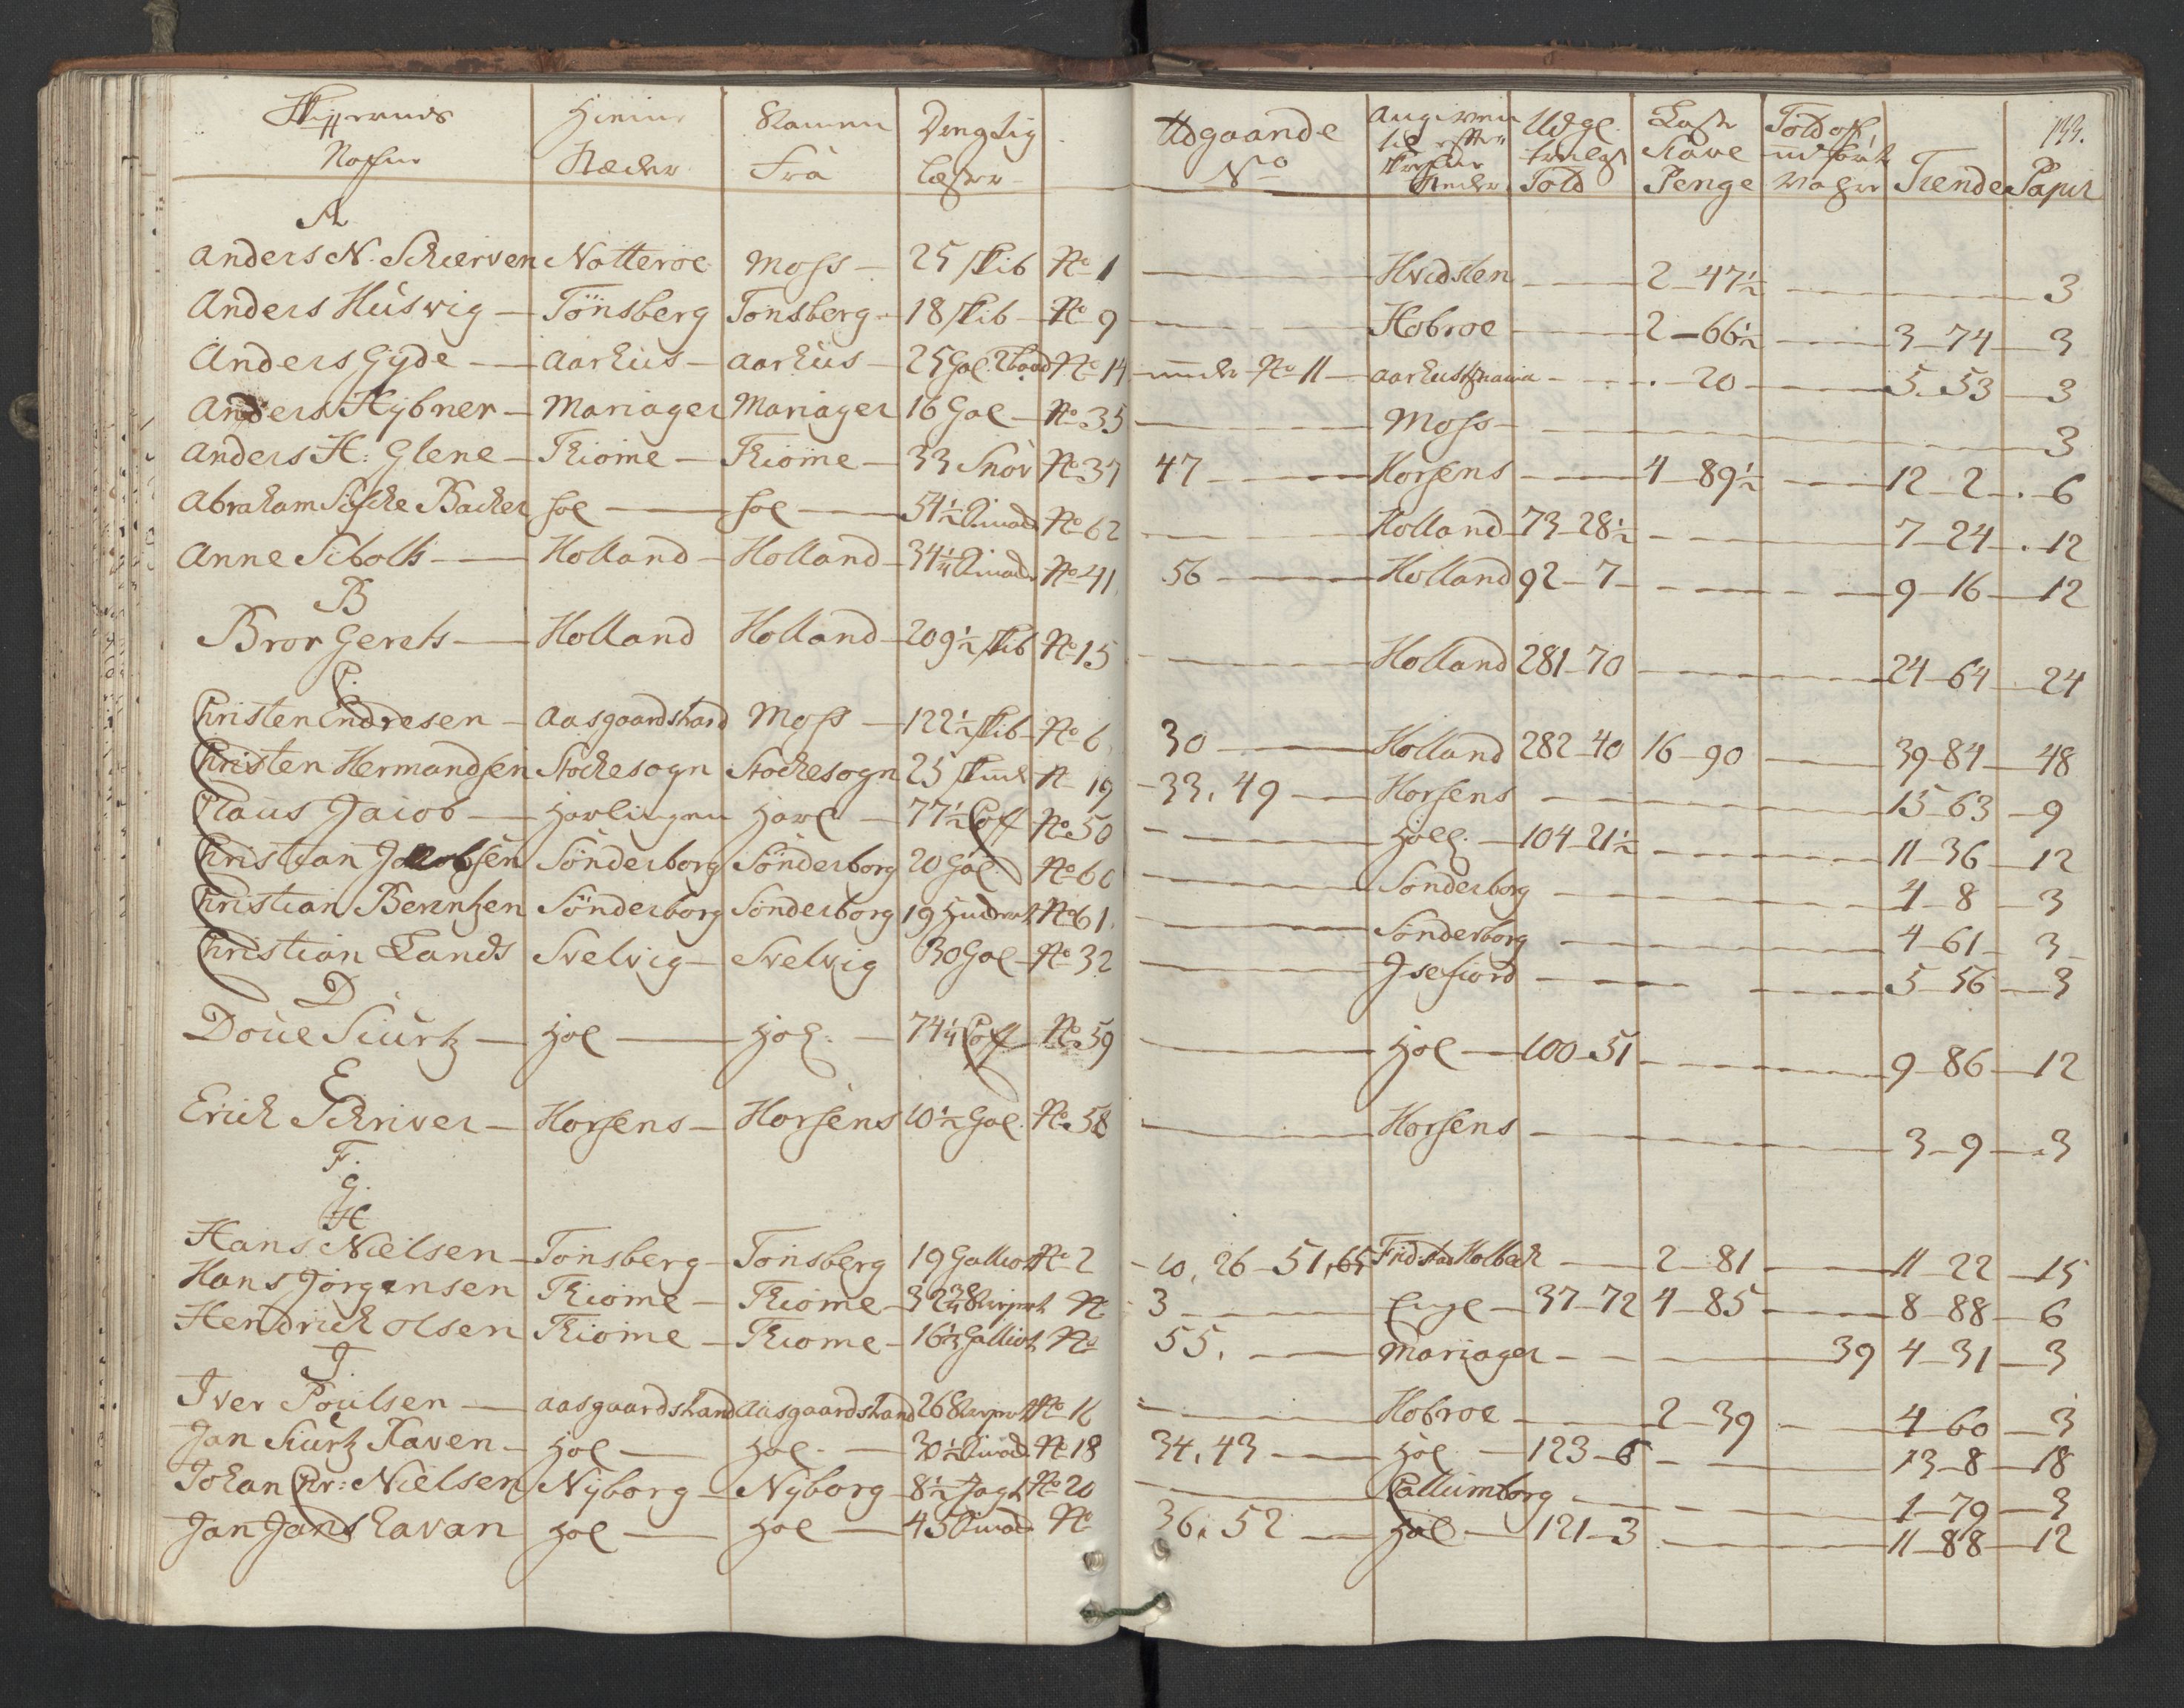 133.
Nafne Stæder Fra Læster Udgaande No Told Penge Tiende Papir
A
Anders N. Schiersen Nøtteroe Moss 25 Skib No 1 Hvidsten 2 47½ 3
Anders Husvig Tönsberg Tonsberg 18 Skib No 9 Hobroe 2 66½ 3 74 3
Anders Gyde Aarhus Aarhus 25 Gal No 14 No 11 20 5 53 3
Anders Hybner Mariager Mariager 16 Gal No 35 Moss 3
Anders H: Glene Tkiome Tkiome 33 Snov No 37 47 Horsens 4 89½ 12 2 6
Abraham Backer Hol Hol No 62 Holland 73 28½ 7 24 12
Anne Sibolts Holland Holland No 41 56 Holland 92 7 9 16 12
B
Bror Gerets Holland Holland 209½ Skib No 15 Holland 281 70 24 64 24
C.
Christen Endresen Aasgaardstrand Moss 122½ Skib No 6 30 Holland 282 40 16 90 39 84 48
Christen Hermandsen Stockesogn Stockesogn 25 N 19 33, 49 Horsens 15 63 9
Claus Jacob Harlingen Harl 77½ Coff No 50 Holl. 104 21½ 11 36 12
Christian Jacobsen Sönderborg Sönderborg 20 Gal. No 60 Sonderborg 4 8 3
Christian Berentzen Sönderborg Sonderborg 19 No 61 Sonderborg 4 61 3
Christian Lands Svelvig Svelvig 30 Gal No 32 Jsefiord 5 56 3
D
Doue Siurtz Hol Hol. 74¼ Coff No 59 Hol 100 51 9 86 12
E
Erich Schriver Horsens Horsens 10½ Gal. No 58 Horsens 3 9 3
F.
G.
H
Hans Nielsen Tonsberg Tonsberg 19 Galliot No 2 10, 26 51, 65 Fridstad Holbeck 2 81 11 22 15
Hans Jörgensen Tkiöme Tkiöme No 3 Engl 37 72 4 85 8 88 6
Hendrich Olsen Tkiöme Tkiome 16½ Galliot No 55. Mariager 39 4 31 3
J
Iver Poulsen Aasgaardstrand Aasgaardstrand 26 No 16 Hobroe 2 39 4 60 3
Jan Siurtz Raven Hol Hol. No 18 34, 43 Hol 123 6 13 8 18
Johan Chr: Nielsen Nyborg Nyborg 8½ Jagt No 20 Callumborg 1 79 3
Jan Jans Lavan Hol Hol 45 No 36, 52 Hol 121 3 11 88 12